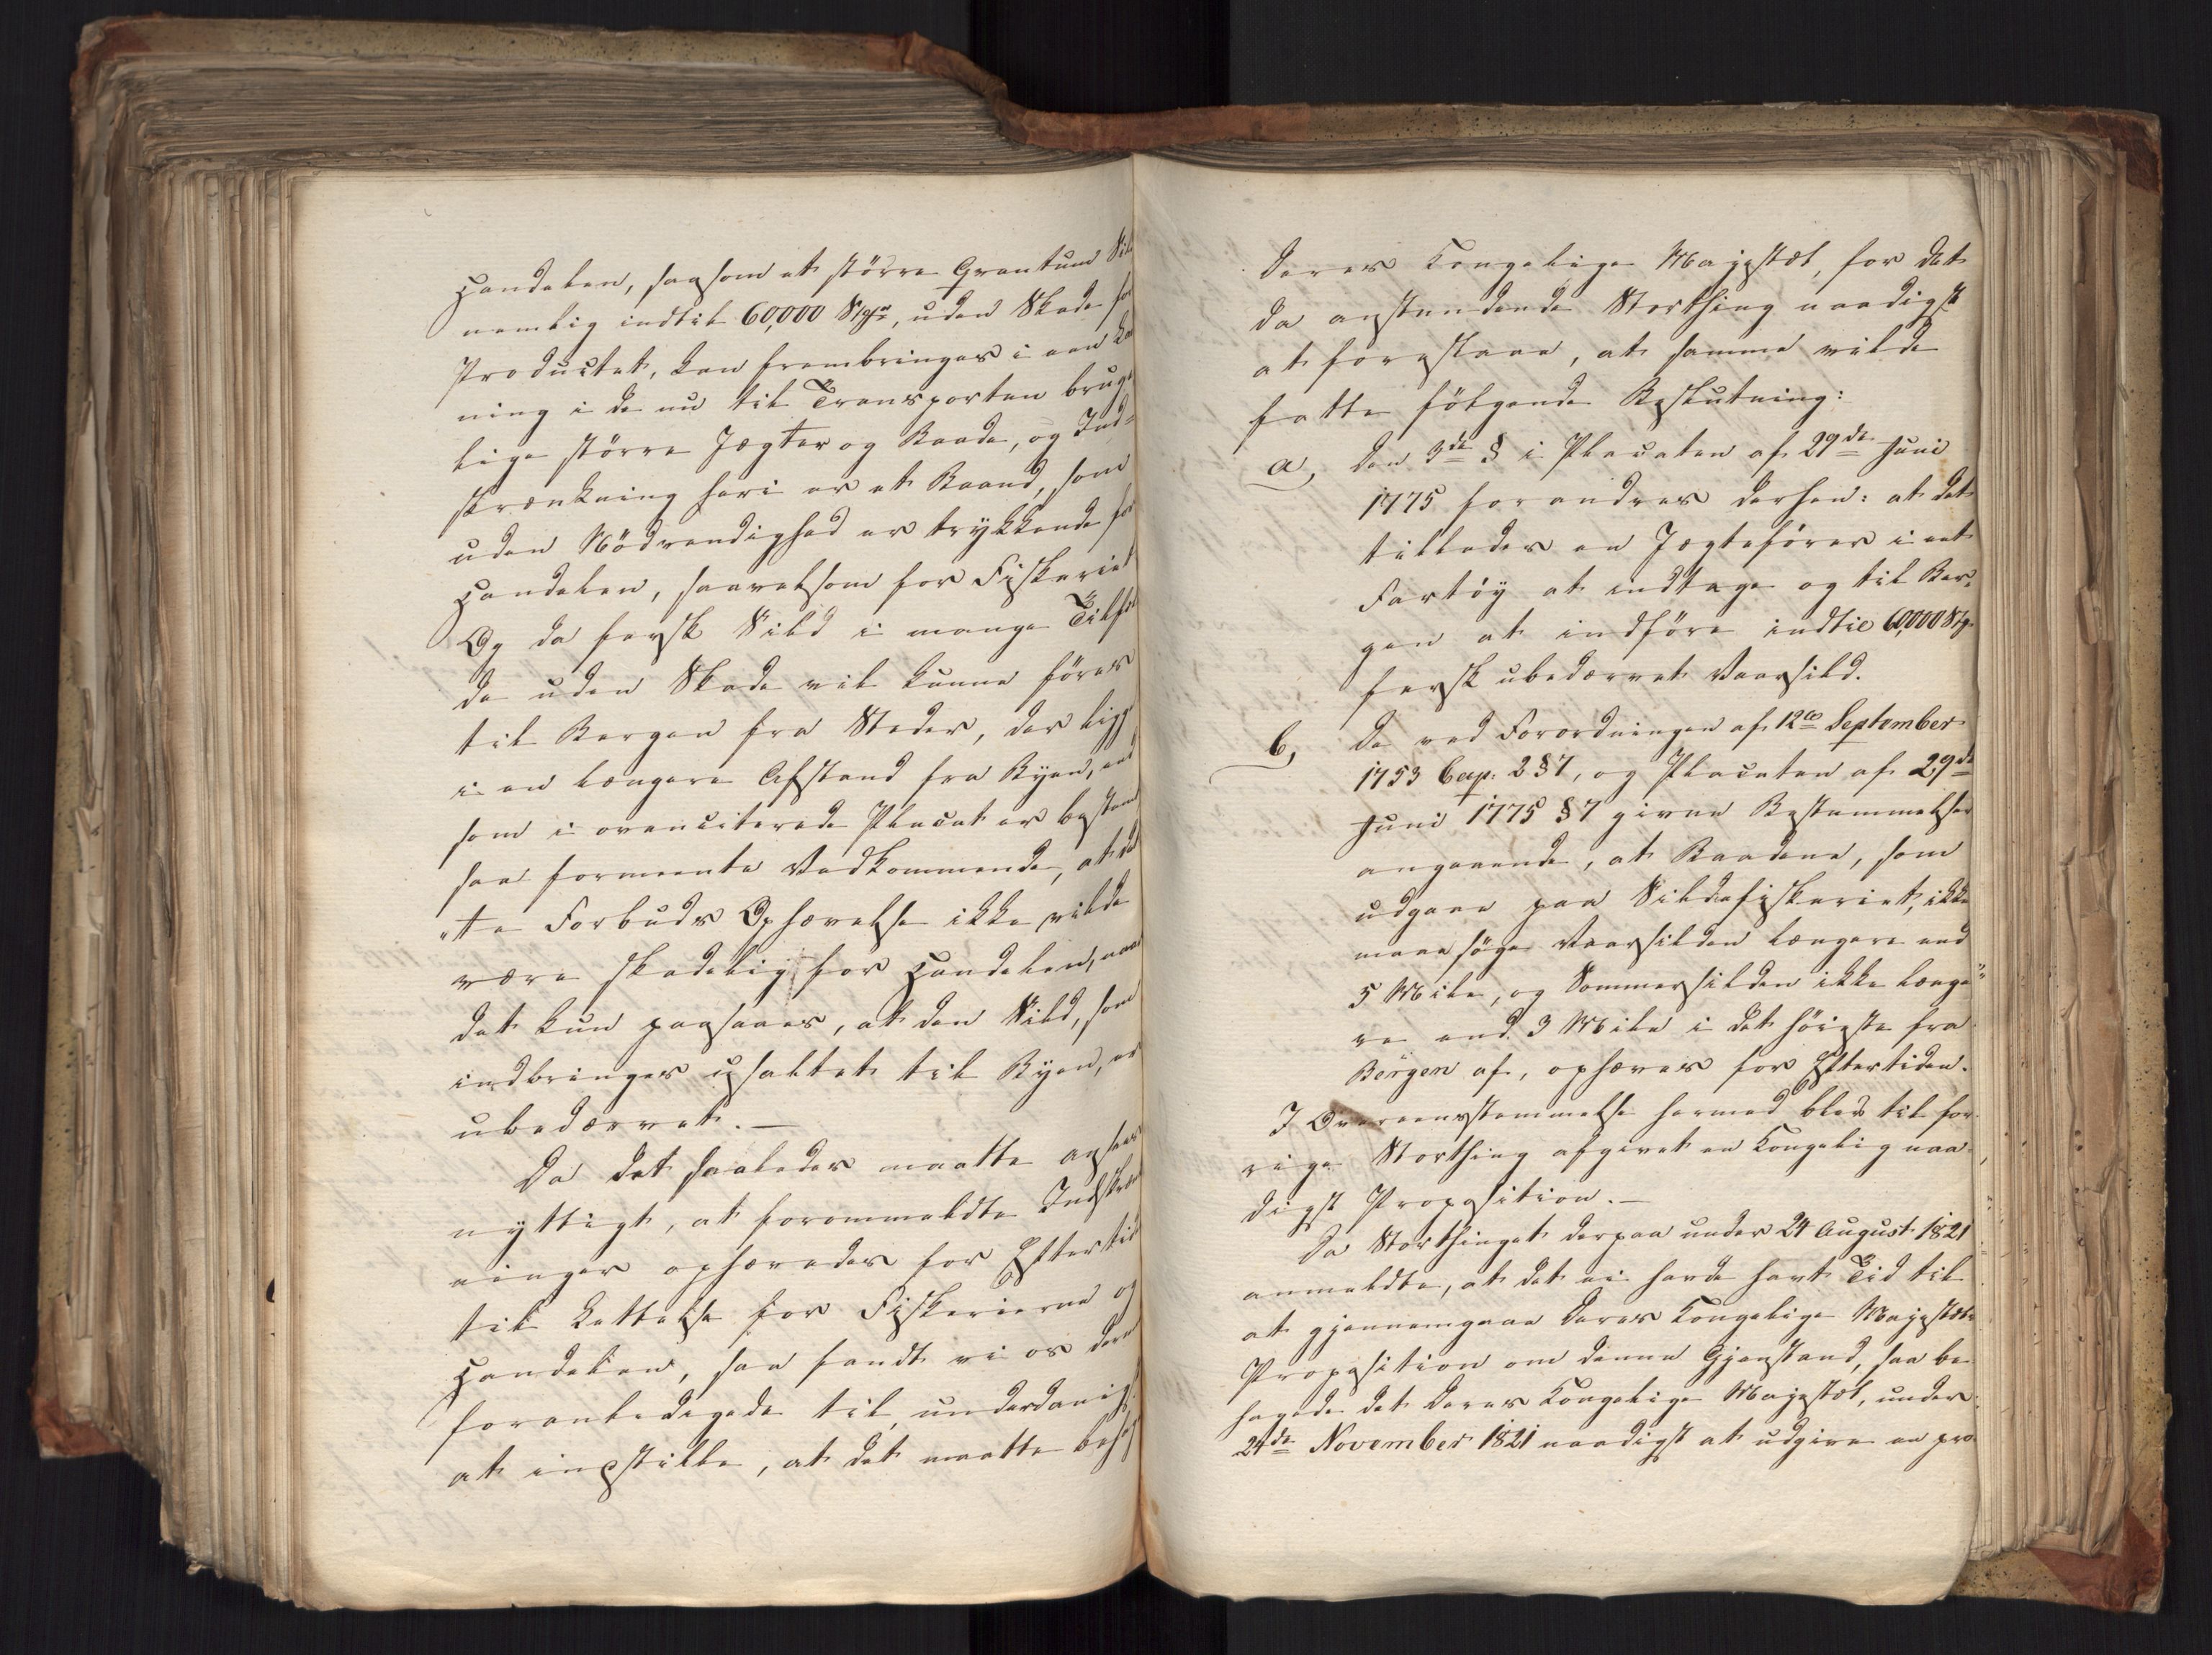 Handelen, saasom et större Qvantum Sild
nemlig indtil 60,000 Stkr, uden Skade for
Productet, kan frembringes i een Lad
ning i de nu til Transporten bruge
lige större Jægter og Baade, og Ind=
skrænkning heri er et Baand, som
uden Nödvendighed er trykkende for
Handelen, saavelsom for Fiskeriet
Og da fersk Sild i mange Tilfæl
de uden Skade vil kunne föres
til Bergen fra Steder, der ligge
i en længere Afstand fra Byen, end
som i ovenciterede Placat er bestemt
saa formeente Vedkommende, at det
"te Forbuds Ophævelse ikke vilde
være skadelig for Handelen, naar
det kun paasaaes, at den Sild, som
indbringes usaltet til Byen, er
ubedærvet. —
Da det saaledes maatte ansees
nyttigt, at forommeldte Indskrænk
ninger ophævedes for Eftertid
til Lettelse for Fiskerierne og
Handelen; saa fandt vi os der
foranledigede til underdanigst
at indstille, at det maatte behage
Deres Kongelige Majestæt, for det
da anstundende Storthing naadigst
at foreslaae, at samme vilde
fatte fölgende Beslutning:
a, Den 3de § i Placaten af 29de Juni
1775 forandres derhen: at det
tillades en Jægtefører i eet
Fartöy at indtage og til Ber-
gen at indföre indtil 60,000 Stk.
fersk ubedærvet Vaarsild.
b, De ved Forordningen af 12te September
1753 Cap. 2 § 7, og Placaten af 29de
Juni 1775 § 7 givne Bestemmelser
angaaende, at Baadene, som
udgaae paa Sildefiskeriet, ikke
maae söge Vaarsilden længere end
5 Mile, og Sommersilden ikke længe"
re end 3 Mile i det höieste fra
Bergen af, ophæves for Eftertiden.
I Overeensstemmelse hermed blev til for
rige Storthing afgivet en Kongelig naa-
digst Proposition. —
Da Storthinget derpaa under 24 August 1821
anmeldte, at det ei havde havt Tid til
at gjennemgaae Deres Kongelige Majestæts
Proposition om denne Gjenstand, saa be
hagede det Deres Kongelige Majestæt, under
24de November 1821 naadigst at udgive en pro